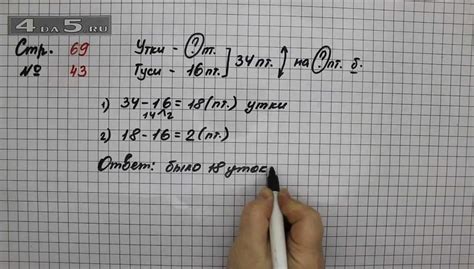 4DA5.RU
Стр. 69
№ 43
Утки - ? пт.
Гуси - 16 пт.
34 пт.
на ? пт. б.
1) 34 - 16 = 18 (пт.) утки
14 2
2) 18 - 16 = 2 (пт.)
Ответ: было 18 уток